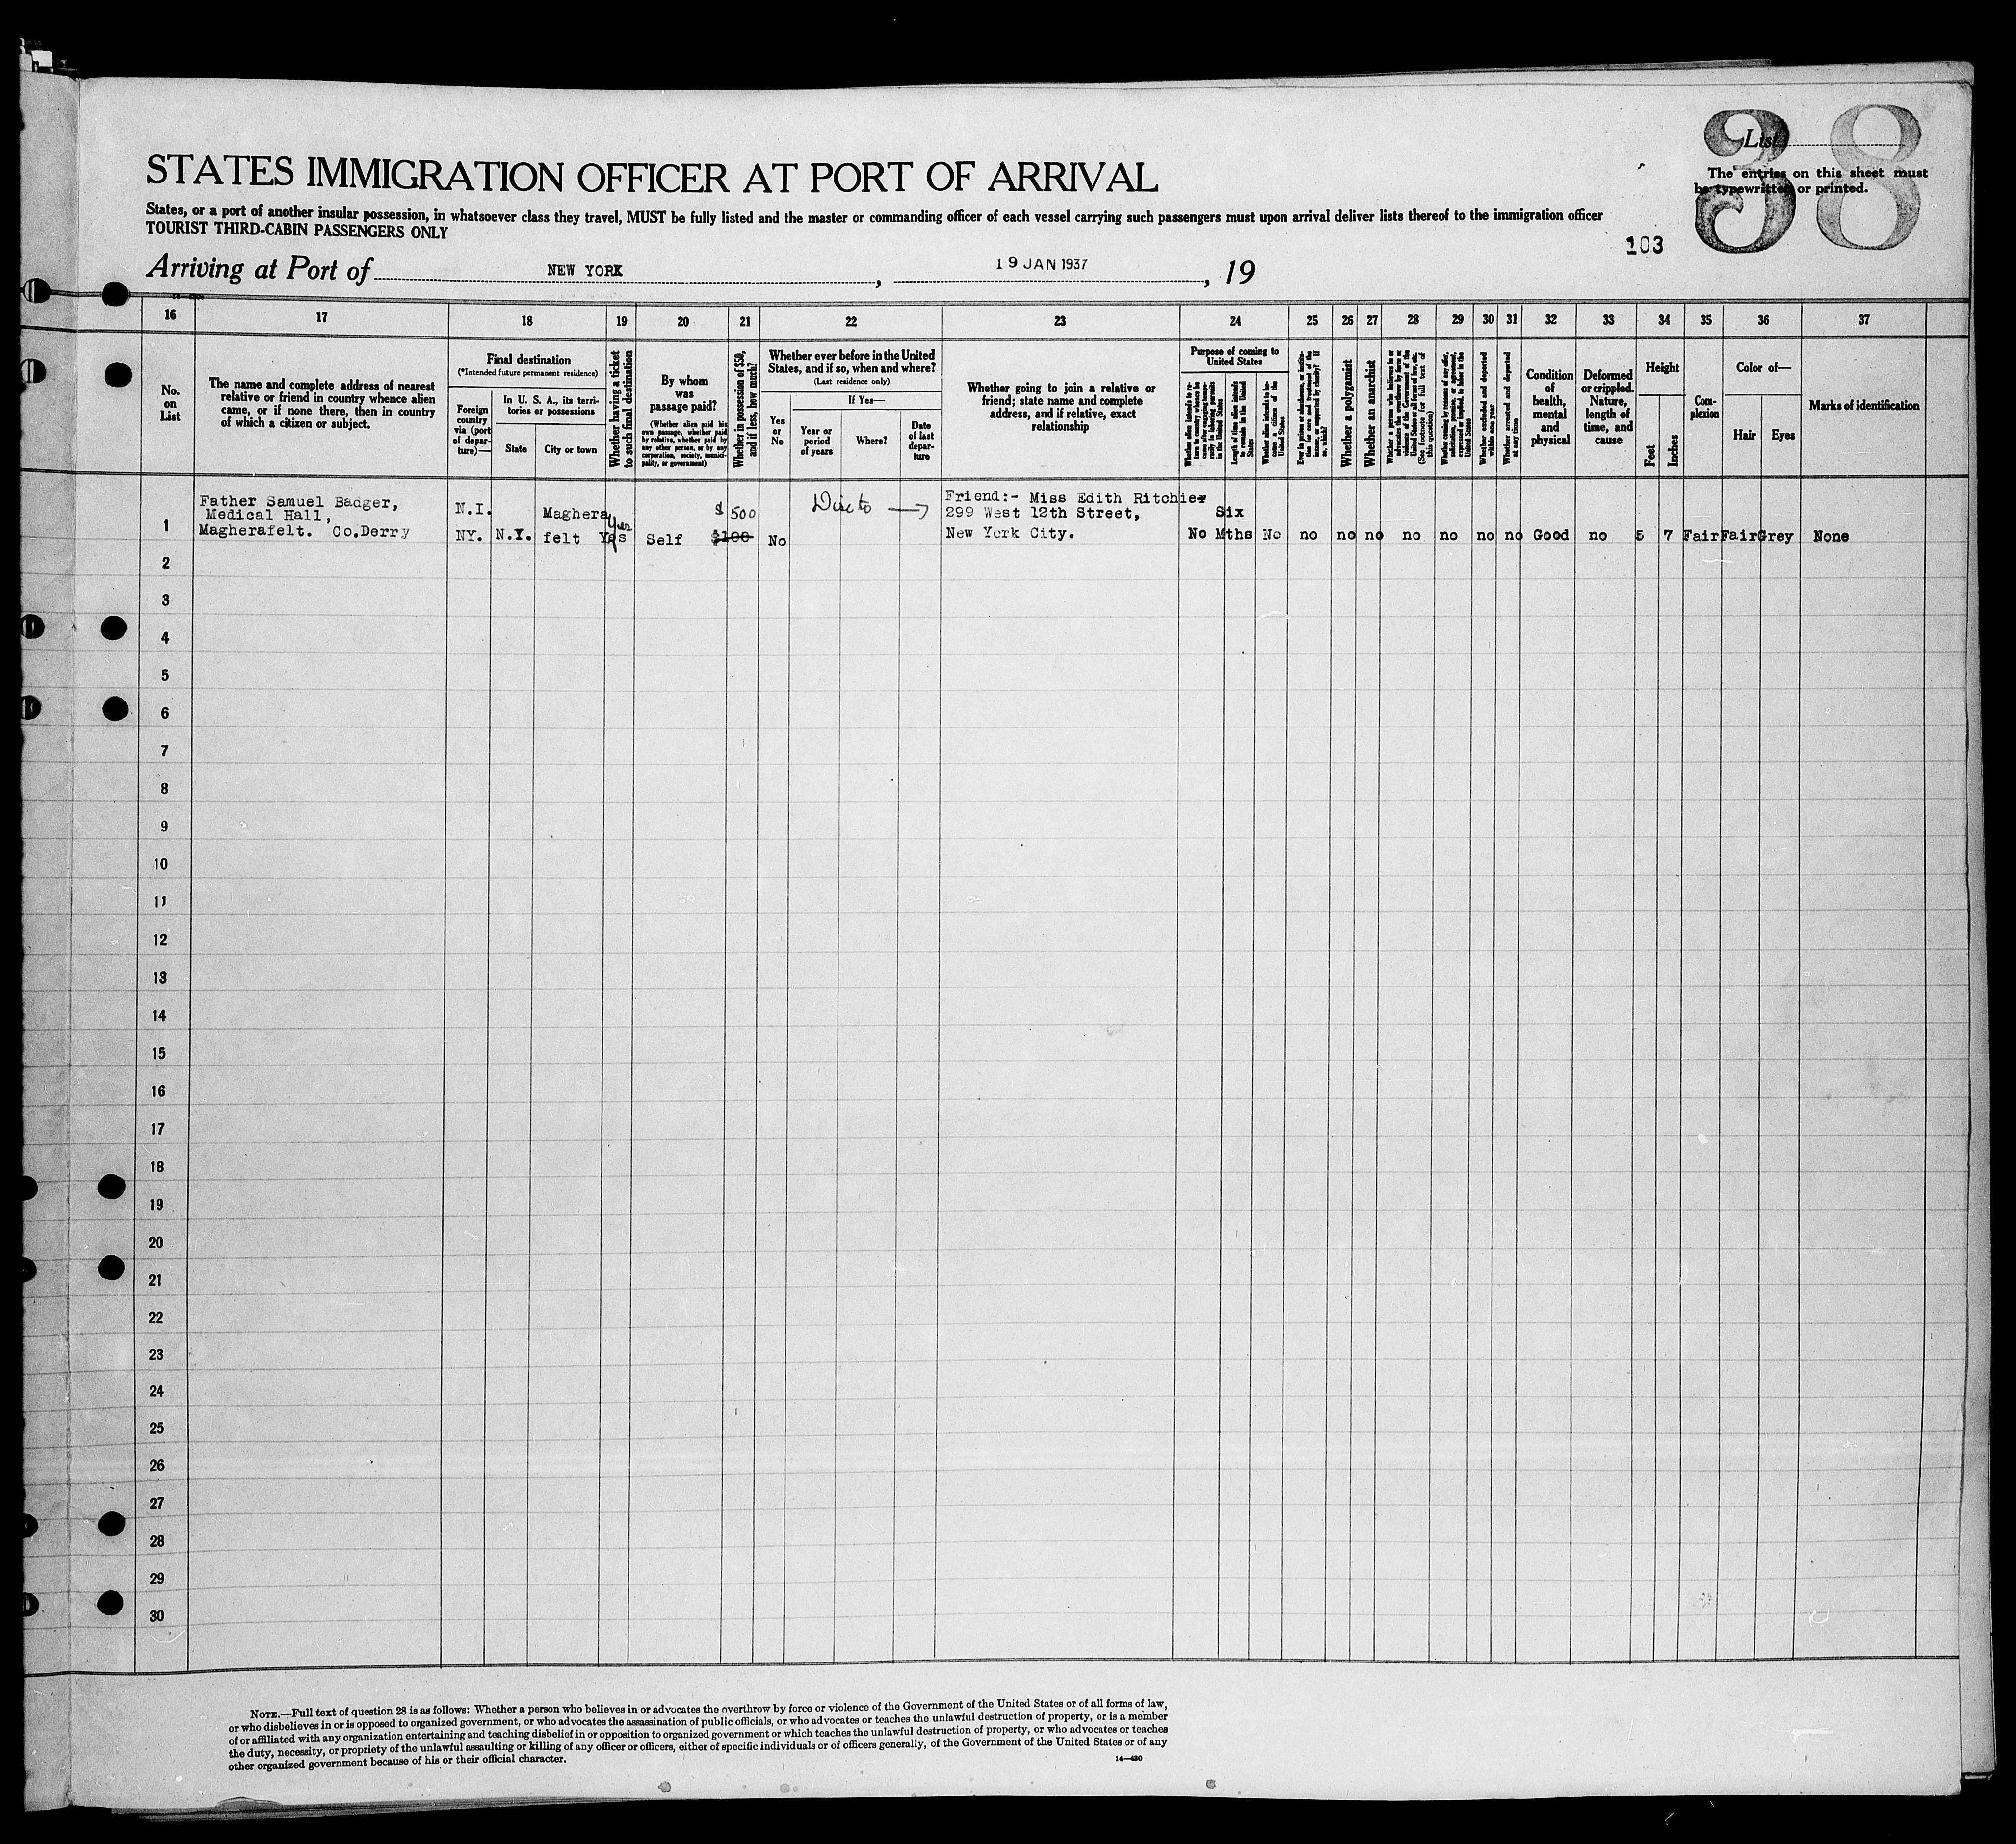 38
List
STATES IMMIGRATION OFFICER AT PORT OF ARRIVAL
The entries on this sheet must
be typewritten or printed.
States, or a port of another insular possession, in whatsoever class they travel, MUST be fully listed and the master or commanding officer of each vessel carrying such passengers must upon arrival deliver lists thereof to the immigration officer
TOURIST THIRD-CABIN PASSENGERS ONLY
103
Arriving at Port of NEW YORK, 19 JAN 1937, 19
16 17 18 19 20 21 22 23 24 25 26 27 28 29 30 31 32 33 34 35 36 37
No.
on
List
The name and complete address of nearest
relative or friend in country whence alien
came, or if none there, then in country
of which a citizen or subject.
Final destination
(*Intended future permanent residence)
Foreign
country
via (port
of depar-
ture)—
In U. S. A., its terri-
tories or possessions
State
City or town
Whether having a ticket
to such final destination
By whom
was
passage paid?
(Whether alien paid his
own passage, whether paid
by relative, whether paid by
any other person, or by any
corporation, society, munici-
pality, or government)
Whether in possession of $50,
and if less, how much?
Whether ever before in the United
States, and if so, when and where?
(Last residence only)
Yes
or
No
If Yes—
Year or
period
of years
Where?
Date
of last
depar-
ture
Whether going to join a relative or
friend; state name and complete
address, and if relative, exact
relationship
Purpose of coming to
United States
Length of time alien intends
to remain in the United
States
Whether alien intends to be-
come a citizen of the
United States
Whether a polygamist
Whether an anarchist
(See footnote for full text of
this question)
Whether excluded and deported
within one year
Whether arrested and deported
at any time
Condition
of
health,
mental
and
physical
Deformed
or crippled.
Nature,
length of
time, and
cause
Height
Feet
Inches
Com-
plexion
Color of—
Hair
Eyes
Marks of identification
Father Samuel Badger, N.I. Maghera $ 500 Friend:- Miss Edith Ritchie
Medical Hall, Yes 299 West 12th Street, Six
1 Magherafelt. Co.Derry NY. N.Y. felt Yes Self $100 No New York City. No Mths No no no no no no no no Good no 5 7 Fair Fair Grey None
2
3
4
5
6
7
8
9
10
11
12
13
14
15
16
17
18
19
20
21
22
23
24
25
26
27
28
29
30
NOTE.—Full text of question 28 is as follows: Whether a person who believes in or advocates the overthrow by force or violence of the Government of the United States or of all forms of law,
or who disbelieves in or is opposed to organized government, or who advocates the assassination of public officials, or who advocates or teaches the unlawful destruction of property, or is a member
of or affiliated with any organization entertaining and teaching disbelief in or opposition to organized government or which teaches the unlawful destruction of property, or who advocates or teaches
the duty, necessity, or propriety of the unlawful assaulting or killing of any officer or officers, either of specific individuals or of officers generally, of the Government of the United States or of any
other organized government because of his or their official character.
14—430